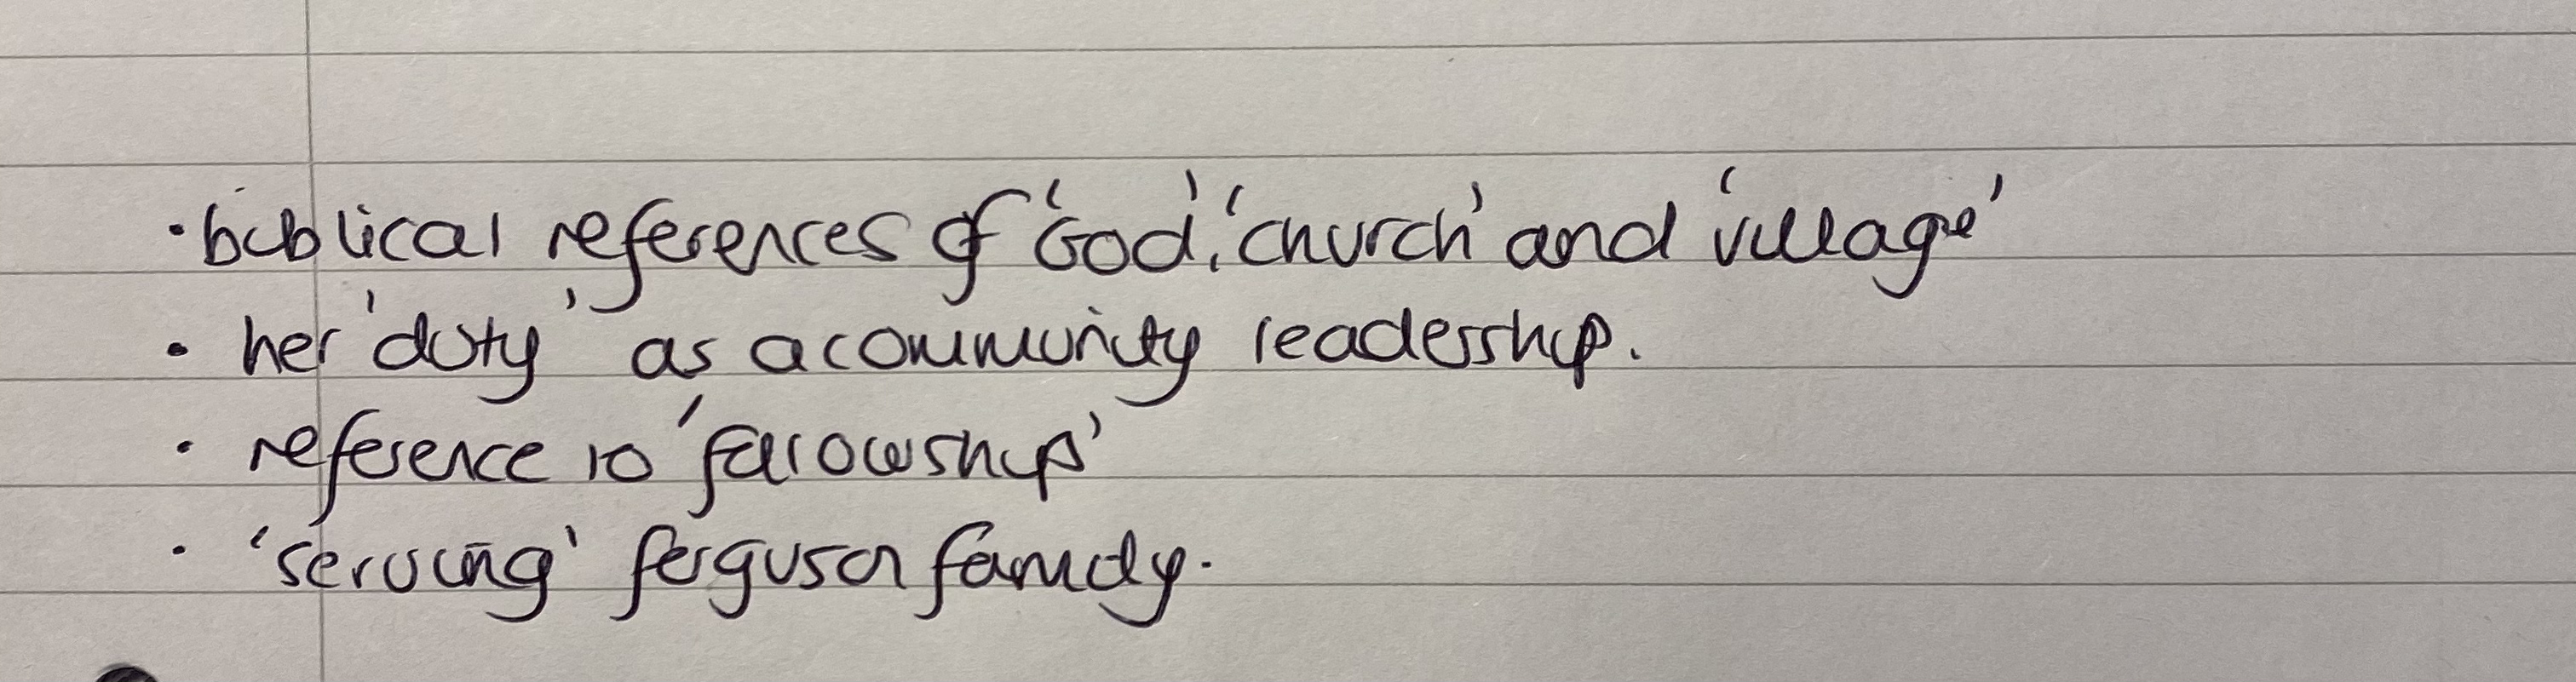 · biblical references of 'God', 'church' and 'village'
· her 'duty' as a community leadership.
· reference to 'fellowship'
· 'serving' ferguson family.